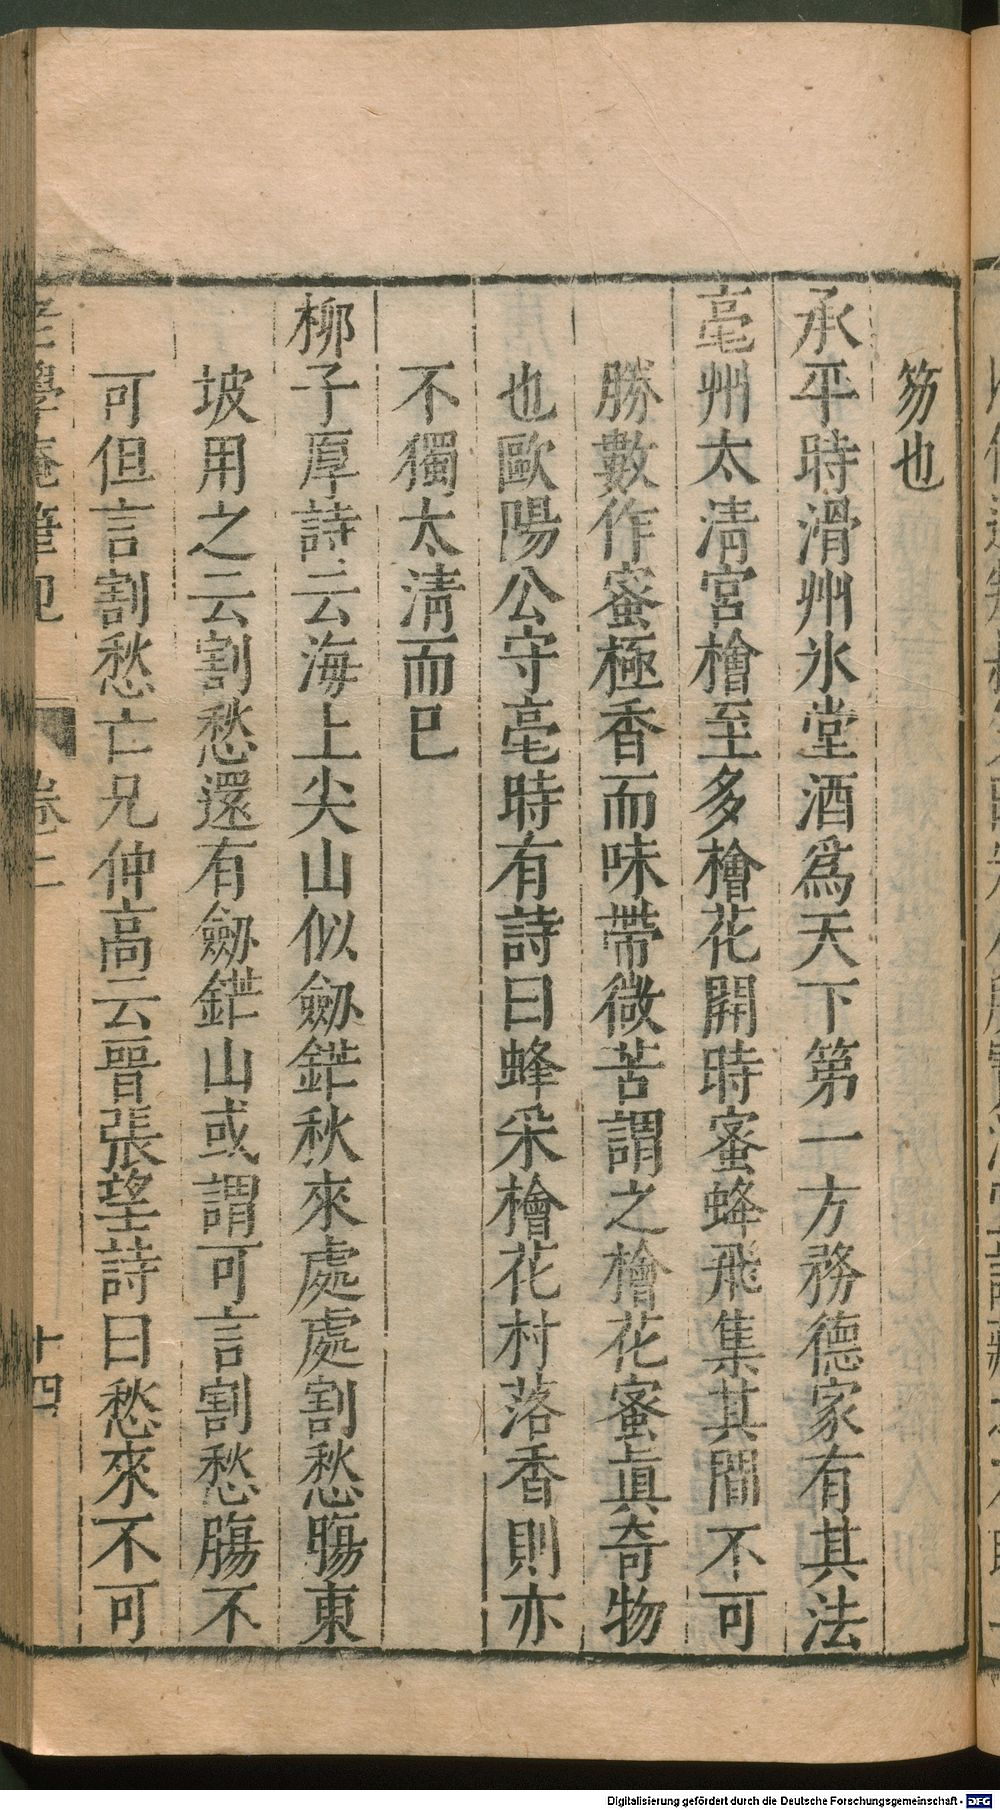 笏也
承平時滑州氷堂酒爲天下第一方務德家有其法
亳州太淸宮檜至多檜花開時蜜蜂飛集其間不可
勝數作蜜極香而味帶微苦謂之檜花蜜眞奇物
也歐陽公守亳時有詩曰蜂采檜花村落香則亦
不獨太淸而已
柳子厚詩云海上尖山似劒鋩秋來處處割愁膓東
坡用之云割愁還有劒鋩山或謂可言割愁膓不
可但言割愁亡兄仲高云晉張望詩曰愁來不可
老學庵筆記 卷二 十四
Digitalisierung gefördert durch die Deutsche Forschungsgemeinschaft - DFG